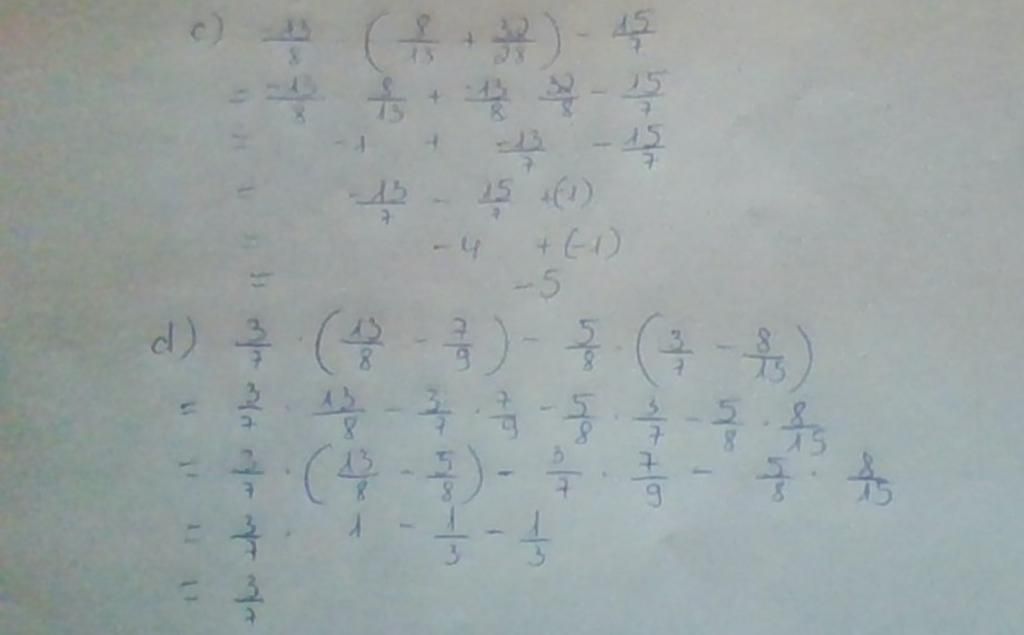 c) -13/8 (8/13 + 32/28) - 15/7
= -13/8 8/13 + -13/8 32/8 - 15/7
= -1 + -13/7 - 15/7
= -13/7 - 15/7 +(-1)
= -4 +(-1)
= -5
d) 3/7 · (13/8 - 7/9) - 5/8 · (3/7 - 8/15)
= 3/7 · 13/8 - 3/7 · 7/9 - 5/8 · 3/7 - 5/8 · 8/15
= 3/7 · (13/8 - 5/8) - 3/7 · 7/9 - 5/8 · 8/15
= 3/7 · 1 - 1/3 - 1/3
= 3/7